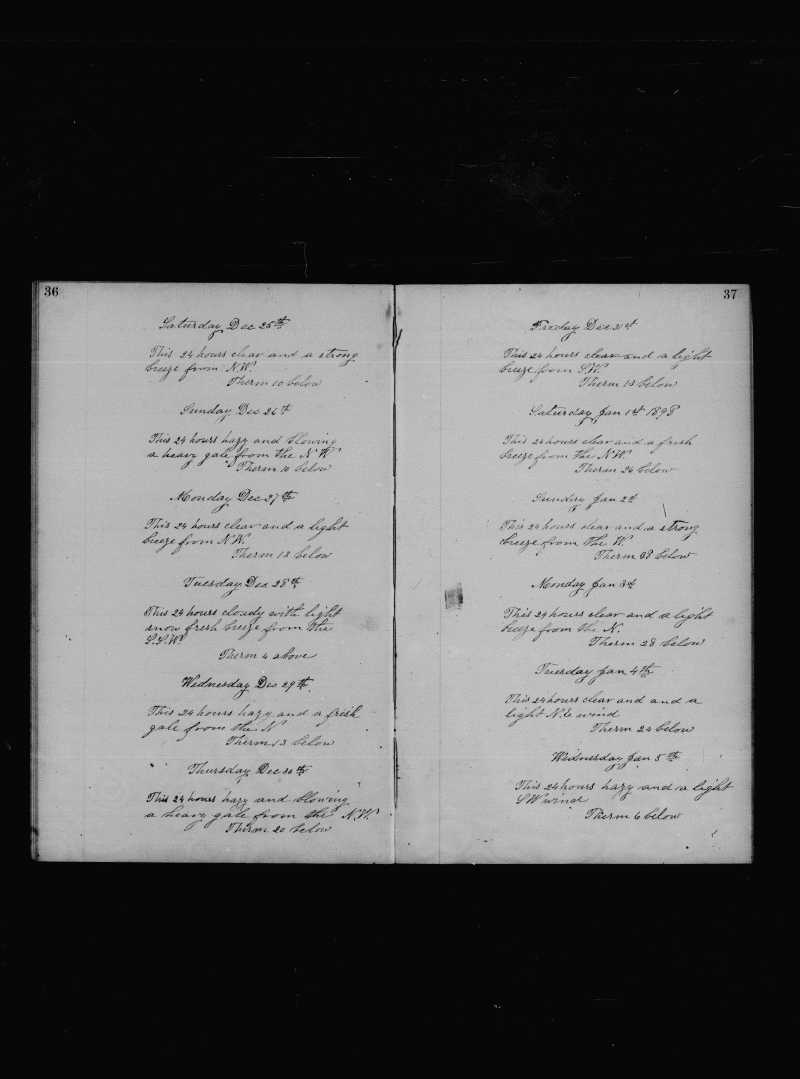 36
Saturday Dec 25th
This 24 hours clear and a strong
breeze from N.W.
Therm 10 below
Sunday Dec 26th
This 24 hours hazy and blowing
a heavy gale from the N W
Therm 10 below
Monday Dec 27th
This 24 hours clear and a light
breeze from N.W.
Therm 18 below
Tuesday Dec 28th
This 24 hours cloudy with light
snow fresh breeze from the
S.S.W.
Therm 4 above
Wednesday Dec 29th
This 24 hours hazy and a fresh
gale from the N
Therm 13 below
Thursday Dec 30th
This 24 hours hazy and blowing
a heavy gale from the N.W.
Therm 20 below
37
Friday Dec 31st
This 24 hours clear and a light
breeze from S.W.
Therm 18 below
Saturday Jan 1st 1898
This 24 hours clear and a fresh
breeze from the N.W.
Therm 26 below
Sunday Jan 2d
This 24 hours clear and a strong
breeze from the W.
Therm 38 below
Monday Jan 3d
This 24 hours clear and a light
breeze from the N.
Therm 28 below
Tuesday Jan 4th
This 24 hours clear and and a
light N.E wind
Therm 24 below
Wednesday Jan 5th
This 24 hours hazy and a light
SW wind
Therm 6 below